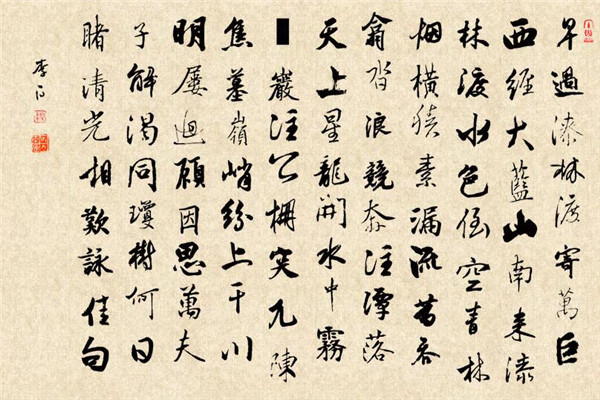 早過漆林渡寄萬巨
西經大藍山南来漆
林渡水色倒空青林
烟橫積素漏流昔吞
翕沓浪競奔注潭落
天上星龍開水中霧
▮巖注公柵突兀陳
焦墓嶺峭紛上干川
明屢迴顧因思萬夫
子解渴同瓊樹何日
睹清光相歡詠佳句
李白